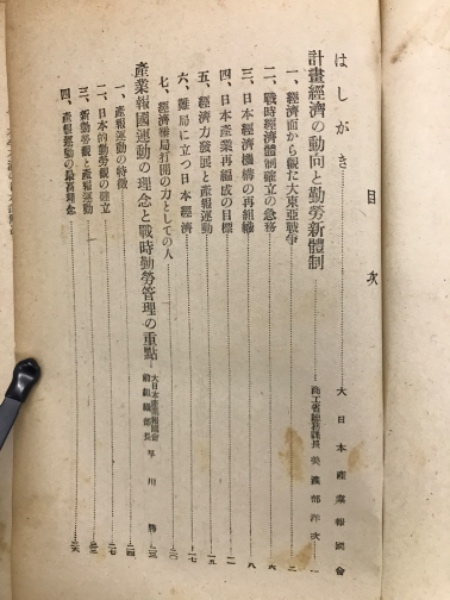 目次
はしがき……大日本産業報國會
計畫經濟の動向と勤勞新體制……商工省總務課長 美濃部洋次…一
一、經濟面から觀た大東亞戰爭……二
二、戰時經濟體制確立の急務……六
三、日本經濟機構の再組織……八
四、日本產業再編成の目標……一一
五、經濟力發展と產報運動……一五
六、難局に立つ日本經濟……一七
七、經濟難局打開の力としての人……二〇
產業報國運動の理念と戰時勤勞管理の重點……大日本產業報國會前組織部長 早川勝…二三
一、產報運動の特徵……二四
二、日本的勤勞觀の確立……二七
三、新勤勞觀と產報運動
四、產報運動の最高理念